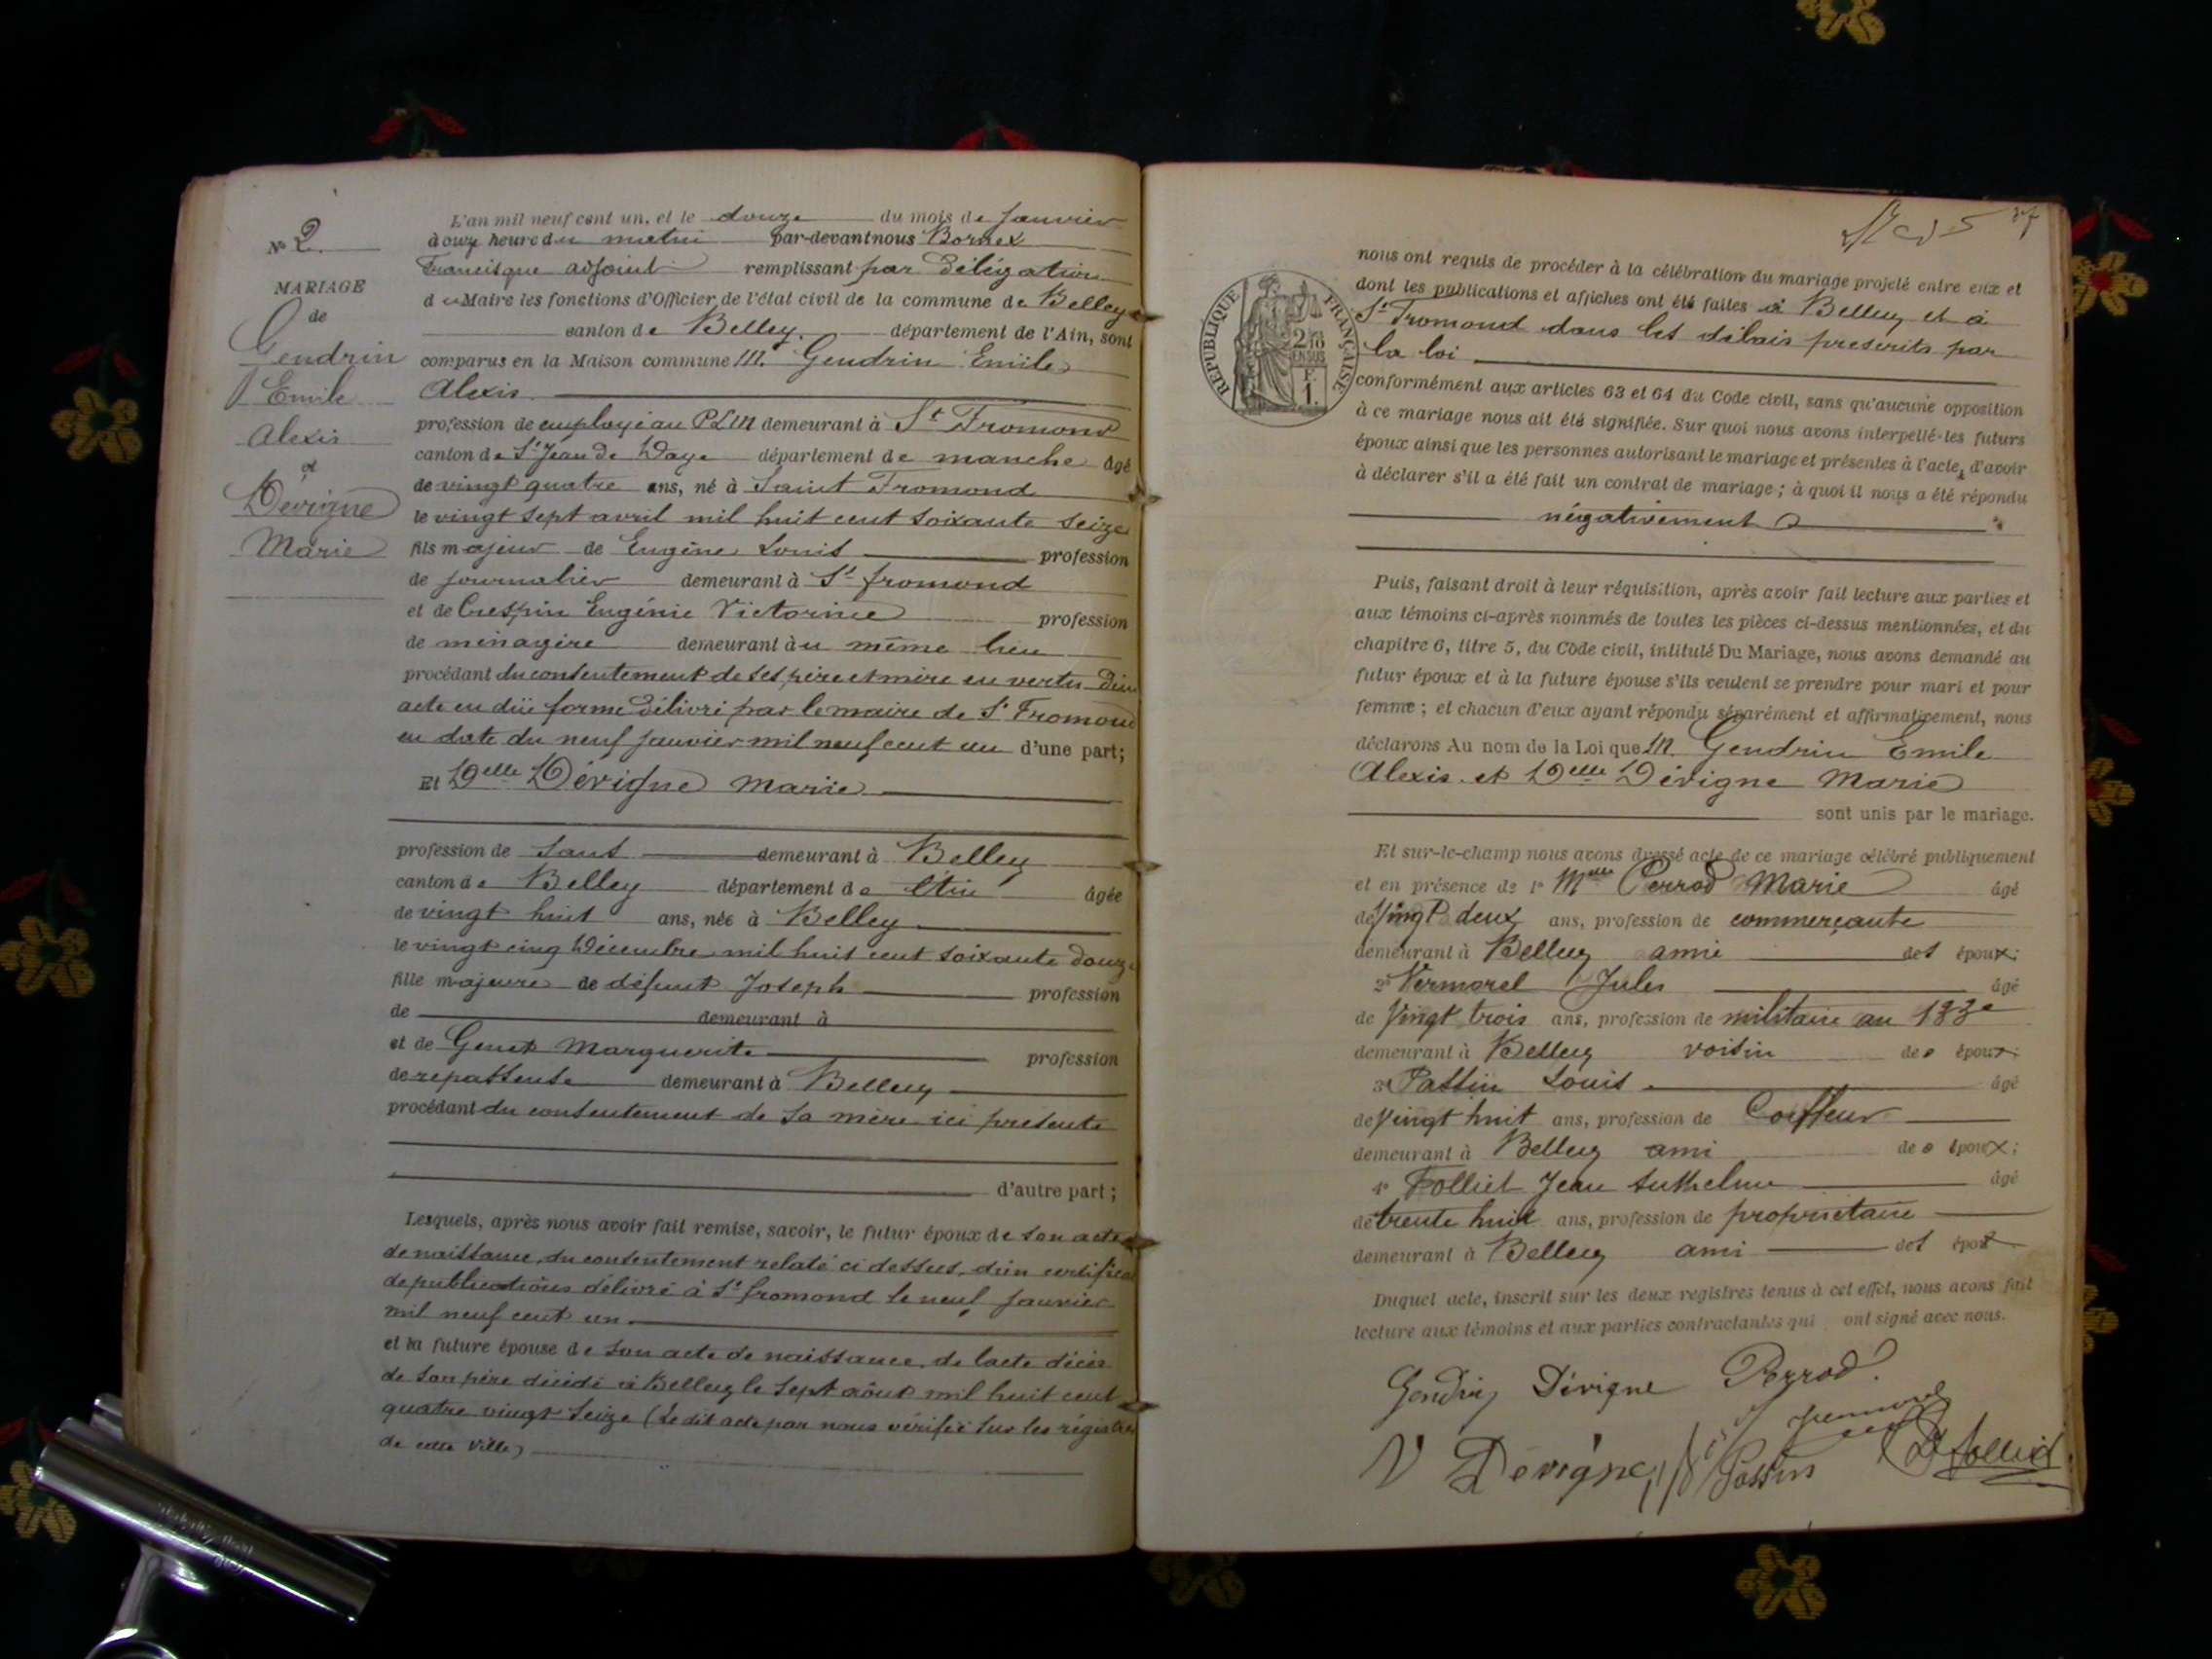 N° 2.
MARIAGE
de
Gendrin
Emile
Alexis
et
Dévigne
Marie
L'an mil neuf cent un, et le douze du mois de Janvier
à onze heure du matin par-devant nous Bornex
Francisque adjoint remplissant par délégation
du Maire les fonctions d'Officier de l'état civil de la commune de Belley
canton de Belley. département de l'Ain, sont
comparus en la Maison commune M. Gendrin Emile
Alexis.
profession de employé au PLM demeurant à St Fromond
canton de St Jean de Daye département de manche âgé
de vingt quatre ans, né à Saint Fromond
le vingt sept avril mil huit cent soixante seize
fils majeur de Eugène Louis profession
de journalier demeurant à St fromond
et de Crespin Eugénie Victorine profession
de ménagère demeurant au même lieu
procédant du consentement de ses père et mère en vertu d'un
acte en düe forme délivré par le maire de St Fromond
en date du neuf Janvier mil neuf cent un d'une part;
Et Delle Dévigne Marie
profession de sans demeurant à Belley
canton de Belley département de l'Ain âgée
de vingt huit ans, née à Belley
le vingt cinq Décembre mil huit cent soixante douze
fille majeure de défunt Joseph profession
de demeurant à
et de Genet Marguerite profession
de repasseuse demeurant à Belley
procédant du consentement de sa mère ici présente
d'autre part;
Lesquels, après nous avoir fait remise, savoir, le futur époux de son acte
de naissance, du consentement relaté ci dessus, d'un certificat
de publications délivré à St fromond le neuf Janvier
mil neuf cent un.
et la future épouse de son acte de naissance, de l'acte décès
de son père décédé à Belley le sept août mil huit cent
quatre vingt seize (Ledit acte par nous vérifié sur les régistres
de cette ville)
37
RÉPUBLIQUE FRANÇAISE
nous ont requis de procéder à la célébration du mariage projeté entre eux et
dont les publications et affiches ont été faites à Belley et à
St Fromond dans les délais prescrits par
la loi
conformément aux articles 63 et 64 du Code civil, sans qu'aucune opposition
à ce mariage nous ait été signifiée. Sur quoi nous avons interpellé les futurs
époux ainsi que les personnes autorisant le mariage et présentes à l'acte, d'avoir
à déclarer s'il a été fait un contrat de mariage; à quoi il nous a été répondu
négativement
Puis, faisant droit à leur réquisition, après avoir fait lecture aux parties et
aux témoins ci-après nommés de toutes les pièces ci-dessus mentionnées, et du
chapitre 6, titre 5, du Code civil, intitulé Du Mariage, nous avons demandé au
futur époux et à la future épouse s'ils veulent se prendre pour mari et pour
femme; et chacun d'eux ayant répondu séparément et affirmativement, nous
déclarons Au nom de la Loi que M. Gendrin Emile
Alexis et Delle Dévigne Marie
sont unis par le mariage.
Et sur-le-champ nous avons dressé acte de ce mariage célébré publiquement
et en présence de 1° Melle Perrod Marie âgé
de Vingt deux ans, profession de commerçante
demeurant à Belley amie des époux;
2° Vermorel Jules âgé
de Vingt trois ans, profession de militaire au 133e
demeurant à Belley voisin des époux;
3° Passin Louis. âgé
de Vingt huit ans, profession de Coiffeur
demeurant à Belley ami des époux;
4° Folliet Jean Anthelme âgé
de trente huit ans, profession de propriétaire
demeurant à Belley ami des époux
Duquel acte, inscrit sur les deux registres tenus à cet effet, nous avons fait
lecture aux témoins et aux parties contractantes qui ont signé avec nous.
Gendrin Dévigne Perrod
V Devigne Passin Folliet